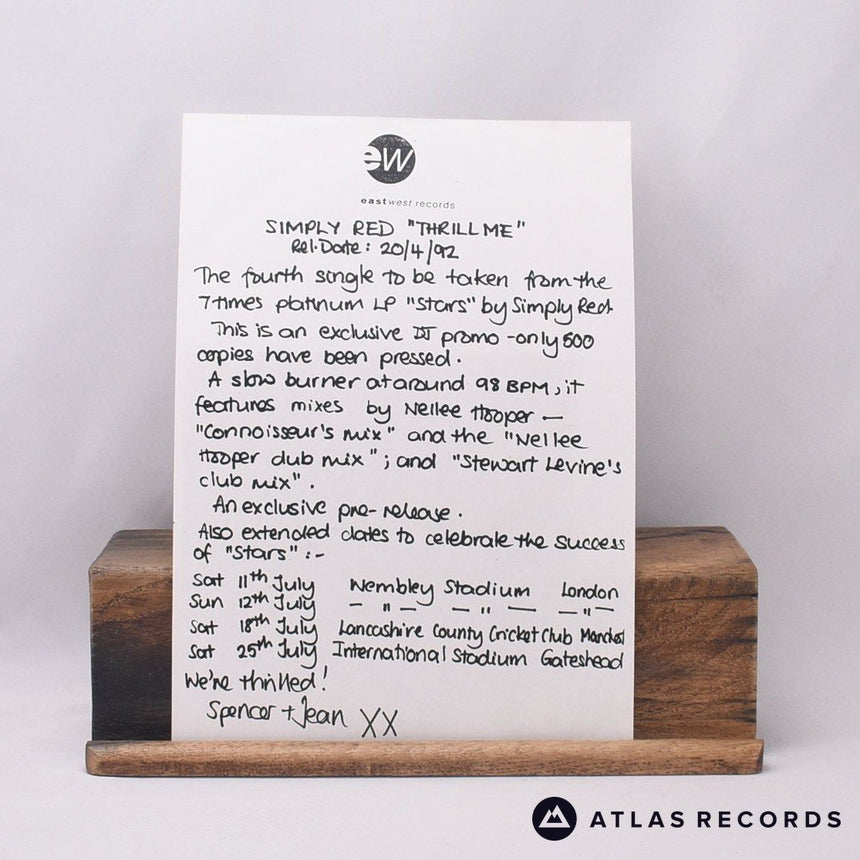 ew
eastwest records
SIMPLY RED "THRILL ME"
Rel.Date: 20/4/92
The fourth single to be taken from the
7 times platinum LP "Stars" by Simply Red.
This is an exclusive DJ promo - only 500
copies have been pressed.
A slow burner at around 98 BPM, it
features mixes by Nellee Hooper —
"Connoisseur's mix" and the "Nellee
Hooper dub mix"; and "Stewart Levine's
club mix".
An exclusive pre-release.
Also extended dates to celebrate the success
of "Stars" :-
Sat 11th July Wembley Stadium London
Sun 12th July — " — — " — — " —
Sat 18th July Lancashire County Cricket Club Manchest
Sat 25th July International Stadium Gateshead
We're thrilled!
Spencer + Jean XX
ATLAS RECORDS